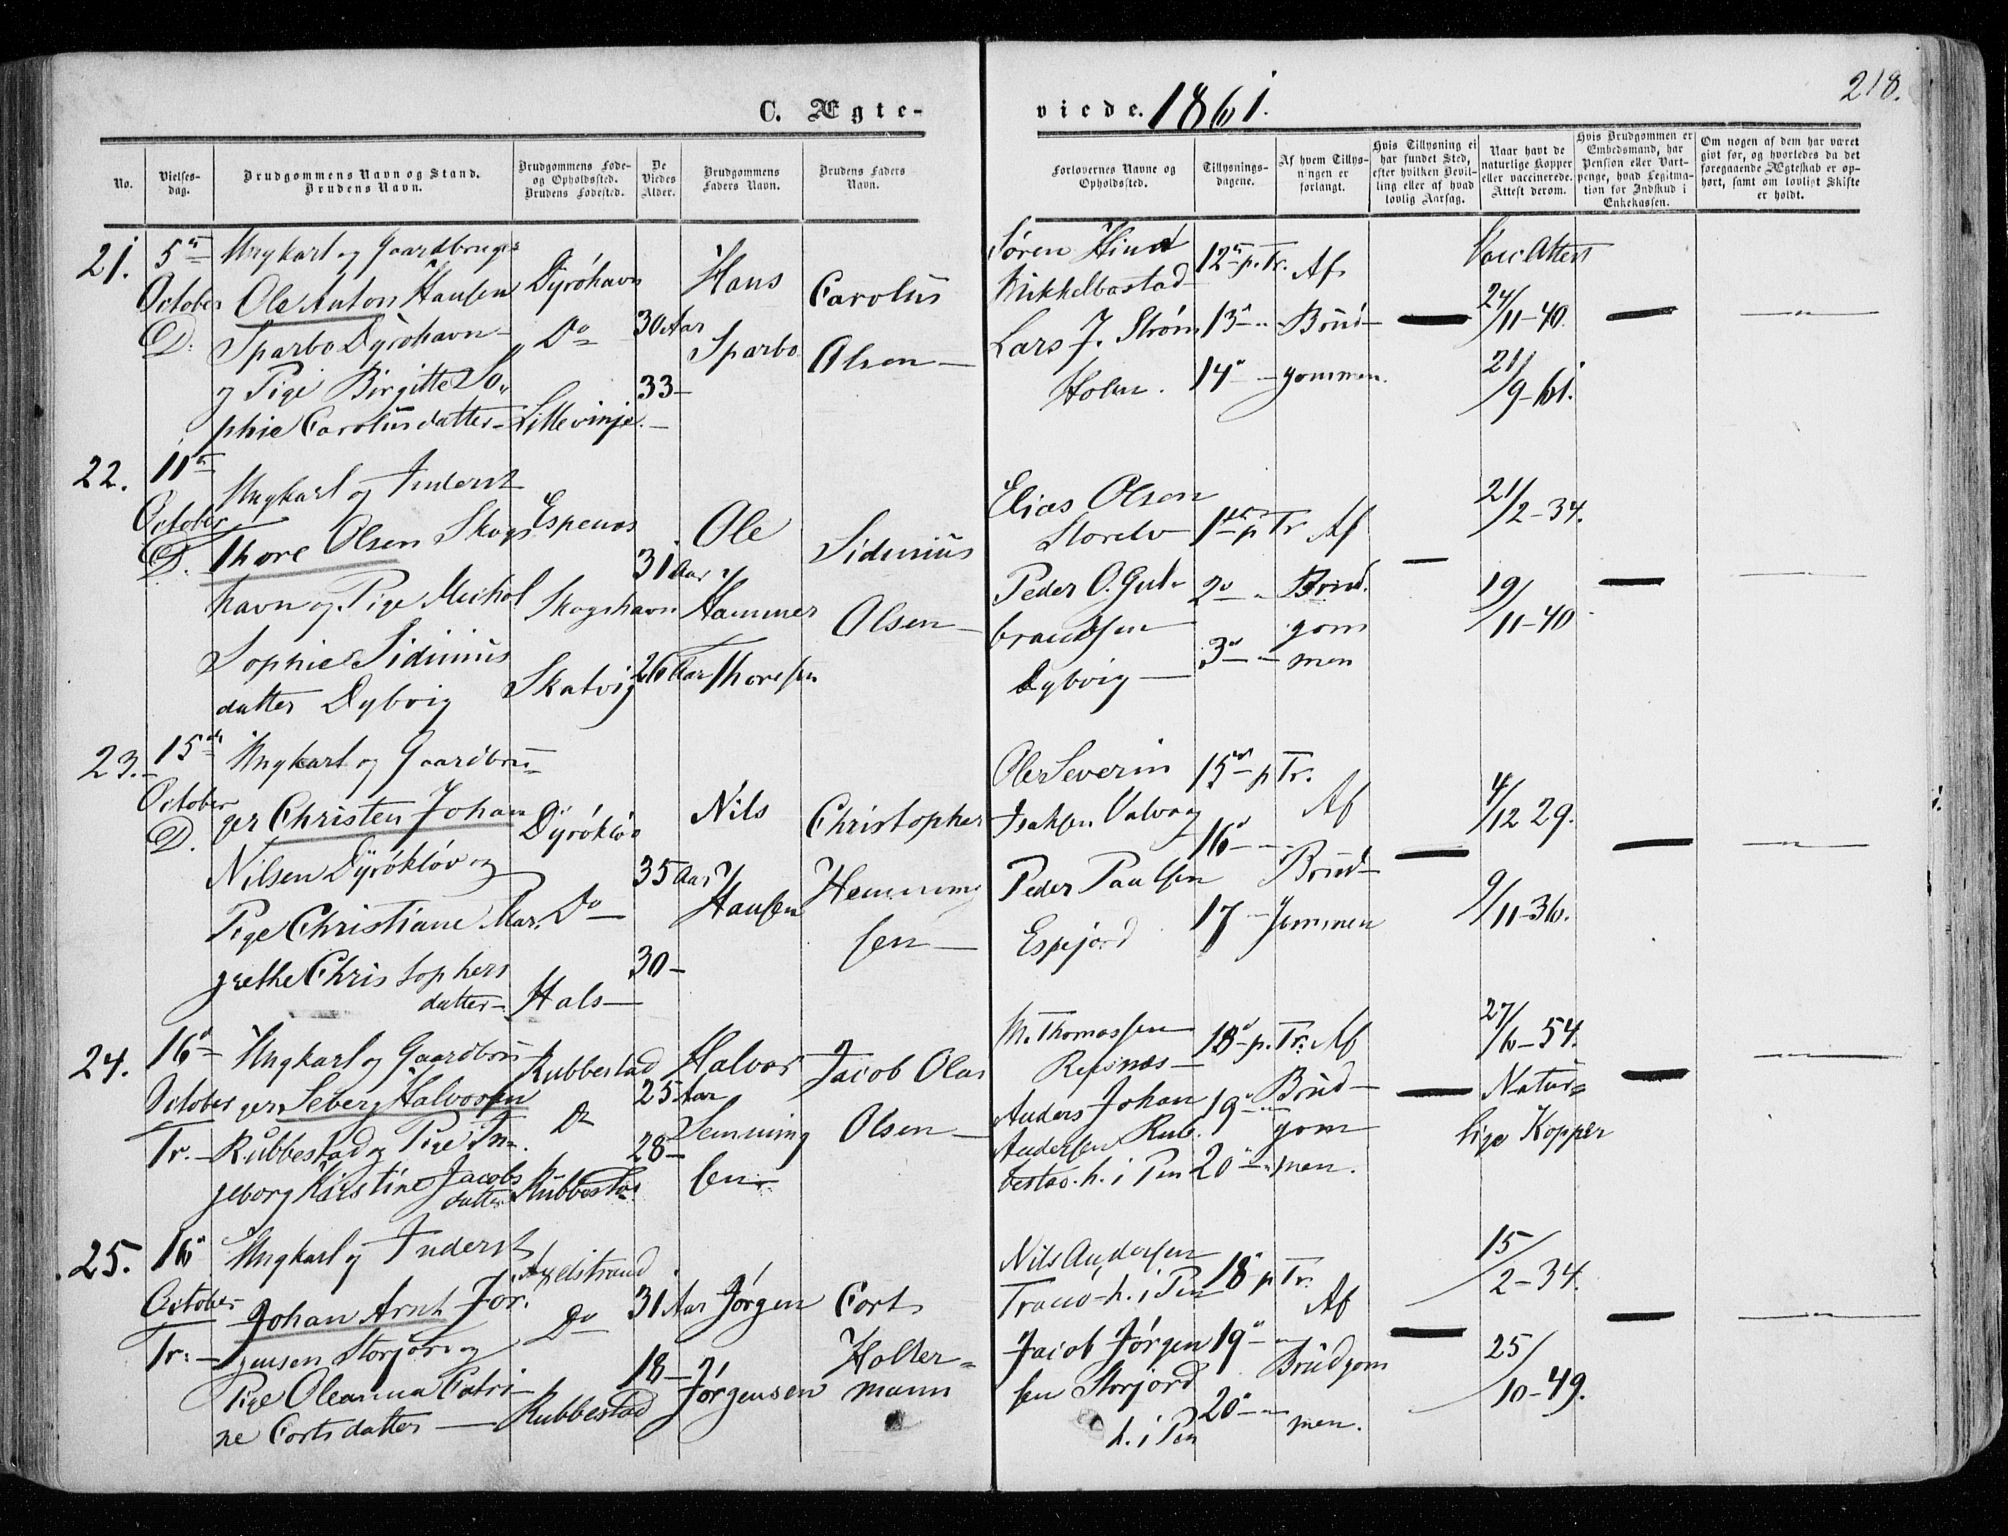 218.
C. Ægte-
viede. 1861.
No.
Vielses-
dag.
Brudgommens Navn og Stand.
Brudens Navn.
Brudgommens Føde-
og Opholdssted.
Brudens Fødested.
De
Viedes
Alder.
Brudgommens
Faders Navn.
Brudens Faders
Navn.
Forlovernes Navne og
Opholdssted.
Tillysnings-
dagene.
Af hvem Tillys-
ningen er
forlangt.
Hvis Tillysning ei
har fundet Sted,
efter hvilken Bevil-
ling eller af hvad
lovlig Aarsag.
Naar havt de
naturlige Kopper
eller vaccinerede.
Attest derom.
Hvis Brudgommen er
Embedsmand, har
Pension eller Vart-
penge, hvad Legitima-
tion for Indskud i
Enkekassen.
Om nogen af dem har været
givt før, og hvorledes da det
foregaaende Ægteskab er op-
hørt, samt om lovligt Skifte
er holdt.
21.
5te
October
D.
Ungkarl og Gaardbruger
Ole Anton Hansen
Sparbo Dyröhavn
og Pige Birgitte So-
phie Carolusdatter
Dyröhavn
Do
Lillevinje
30 Aar
33
Hans
Sparbo
Carolus
Olsen
Søren
Mikkelbostad
Lars J. Strøm
Holm.
12te p. Tr.
13de
14de
Af
Brüd-
gommen.
Vacc. Attest
24/11-40.
21/9-61.
22.
11te
October
D.
Ungkarl og Inderst
Thore Olsen Skogs
havn og Pige Michol
Sophie Sidinius
datter Dybvig
Espenæs
Skogshavn
Skatvig
31 Aar
26 Aar
Ole
Hammer
Thoresen
Sidinius
Olsen
Elias Olsen
Storelv
Peder O. Gul-
brandsen
Dybvig
1ste p Tr
2d
3d
Af
Brüd.
gom
men
21/2-34.
19/11-40
23.
15de
October
D.
Ungkarl og Gaardbrü-
ger Christen Johan
Nilsen Dyröklöv og
Pige Christiane Mar.
grethe Christophers
datter
Dyröklöv
Do
Hals
35 Aar
30
Nils
Hansen
Christopher
Hemming
sen
Ole Severin
Isaksen Valvag
Peder Paulsen
Espejord
15de p Tr.
16d
17
Af
Brüd-
gommen
4/12 29.
9/11-36.
24.
16d
October
Tr.
Ungkarl og Gaardbrü-
ger Seberg Halvorsen
Rübbestad og Pige In-
geborg Kirstine Jacobs
datter
Rubbestad
Do
Rübbestad
25 Aar
28
Halvor
Hemming
sen
Jacob Olaus
Olsen
M. Thomassen
Refsnæs
Anders Johan
Andersen Rub.
bestad. h. i Pen
18d p. Tr.
19d
20d
Af
Brüd-
gom
men.
27/6-54.
Natür-
lige Kopper
25.
16d
October
Tr.
Ungkarl og Inderst
Johan Arnt Jör.
gensen Storjord og
Pige Oleanna Catri-
ne Cortsdatter
Do
Rubbestad
31 Aar
18
Jørgen
Jørgensen
Cort
Holter-
mann
Nils Andersen
h. i Pen
Jacob Jørgen
sen Storjord
h. i Pen
18d p Tr.
19d
20d
Af
Brüdgom
men.
15/2-34.
25/10-49.